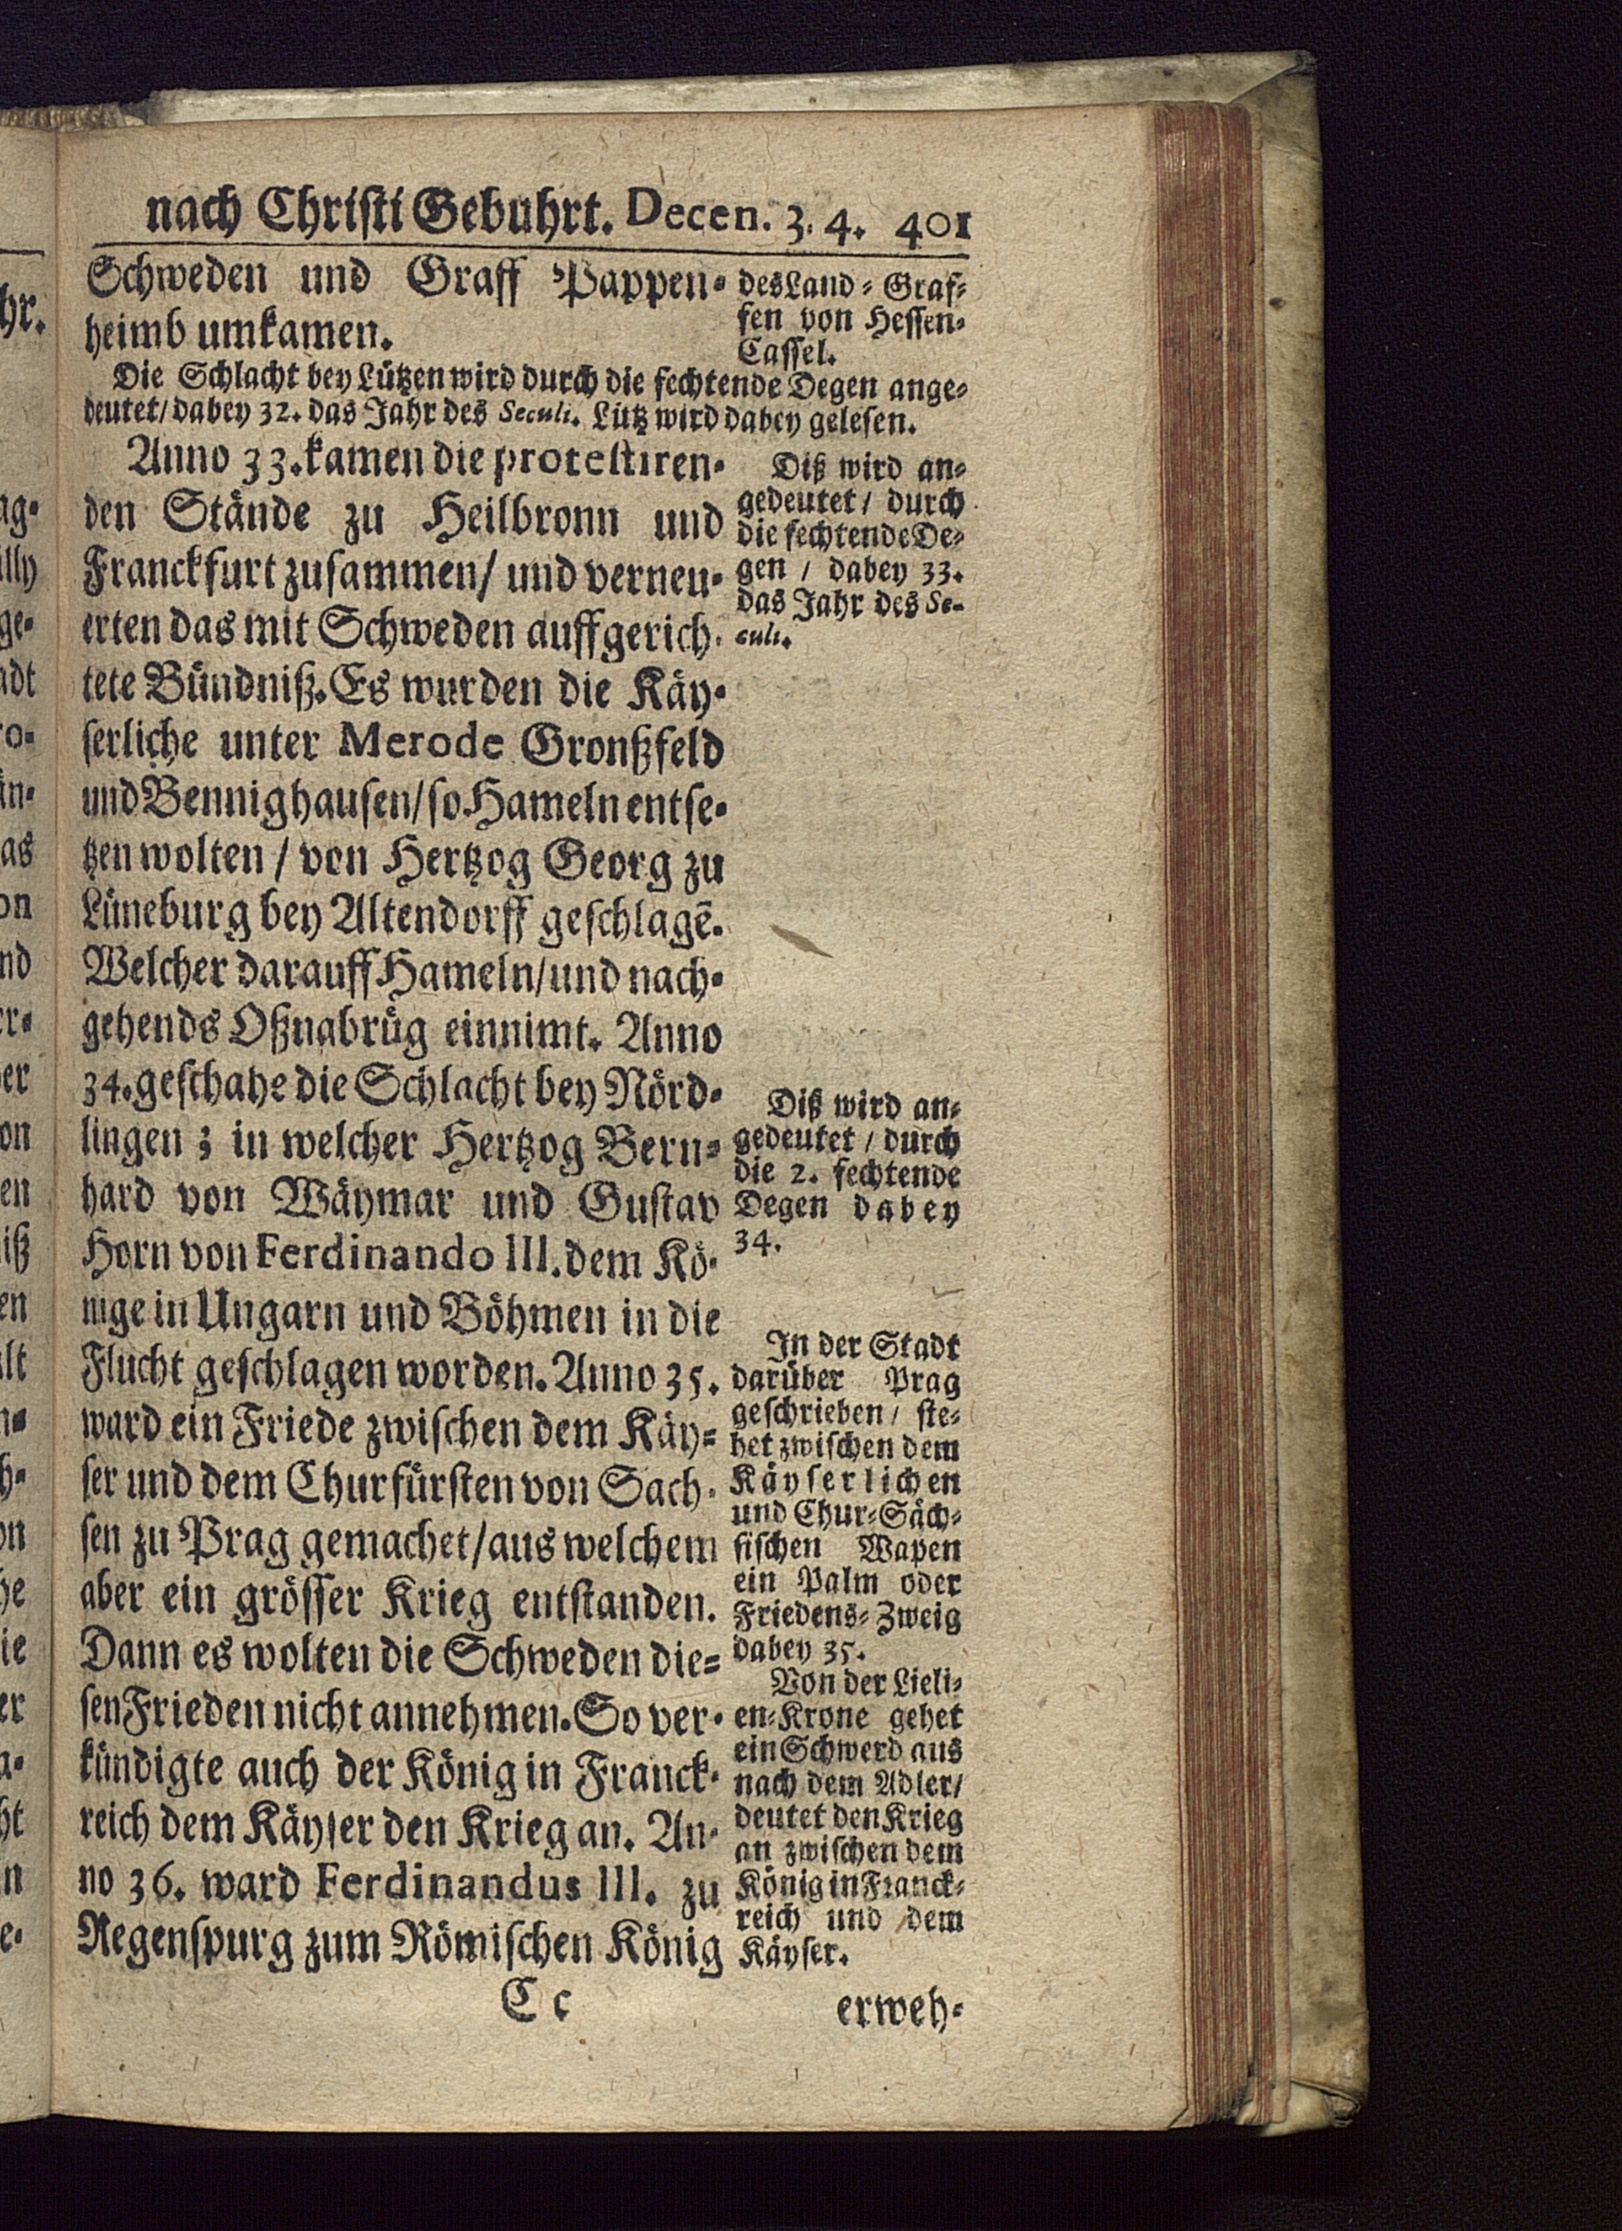 nach Christi Gebuhrt. Decen. 3. 4. 401
Schweden und Graff Pappen-
heimb umkamen.
des Land-Graf-
fen von Hessen-
Cassel.
Die Schlacht bey Lützen wird durch die fechtende Degen ange-
deutet/ dabey 32. das Jahr des Seculi. Lütz wird dabey gelesen.
Anno 33. kamen die protestiren-
den Stände zu Heilbronn und
Franckfurt zusammen/ und verneu-
erten das mit Schweden auffgerich-
tete Bündniß. Es wurden die Käy-
serliche unter Merode Gronßfeld
und Bennighausen/ so Hameln entse-
tzen wolten / von Hertzog Georg zu
Lüneburg bey Altendorff geschlagẽ.
Welcher darauff Hameln/ und nach-
gehends Oßnabrüg einnimt. Anno
34. geschahe die Schlacht bey Nörd-
lingen; in welcher Hertzog Bern-
hard von Wäymar und Gustav
Horn von Ferdinando III. dem Kö-
nige in Ungarn und Böhmen in die
Flucht geschlagen worden. Anno 35.
ward ein Friede zwischen dem Käy-
ser und dem Churfürsten von Sach-
sen zu Prag gemachet/ aus welchem
aber ein grösser Krieg entstanden.
Dann es wolten die Schweden die-
sen Frieden nicht annehmen. So ver-
kündigte auch der König in Franck-
reich dem Käyser den Krieg an. An-
no 36. ward Ferdinandus III. zu
Regenspurg zum Römischen König
Diß wird an-
gedeutet / durch
die fechtende De-
gen / dabey 33.
das Jahr des Se-
culi.
Diß wird an-
gedeutet / durch
die 2. fechtende
Degen dabey
34.
In der Stadt
darüber Prag
geschrieben / ste-
het zwischen dem
Käyserlichen
und Chur-Säch-
sischen Wapen
ein Palm oder
Friedens-Zweig
dabey 35.
Von der Lieli-
en-Krone gehet
ein Schwerd aus
nach dem Adler/
deutet den Krieg
an zwischen dem
König in Franck-
reich und dem
Käyser.
C c
erweh-